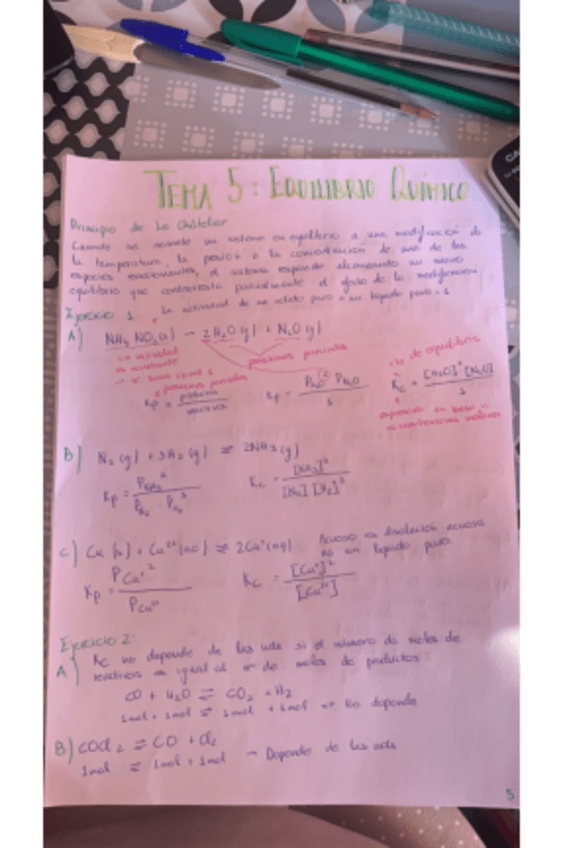 TEMA 5: EQUILIBRIO QUÍMICO
Principio de Le Châtelier
Cuando se somete un sistema en equilibrio a una modificación de
la temperatura, la presión o la concentración de una de las
especies reaccionantes, el sistema responde alcanzando un nuevo
equilibrio que contrarresta parcialmente el efecto de la modificación
Ejercicio 1: La actividad de un sólido puro o un líquido puro = 1
A) NH4 NO3(s) → 2H2O(g) + N2O(g)
La actividad
es constante
se toma como 1
presiones parciales
presiones parciales
Kp = productos / reactivos
Kp = PH2O² PN2O / 1
cte de equilibrio
Kc = [H2O]² [N2O] / 1
expresión en base a
concentraciones molares
B) N2(g) + 3H2(g) ⇌ 2NH3(g)
Kp = PNH3² / PN2 PH2³
Kc = [NH3]² / [N2] [H2]³
C) Cu(s) + Cu²⁺(ac) ⇌ 2Cu⁺(aq)
Acuoso es disolución acuosa
no un líquido puro
Kp = PCu⁺² / PCu²⁺
Kc = [Cu⁺]² / [Cu²⁺]
Ejercicio 2:
A) Kc no depende de las uds si el número de moles de
reactivos es igual al nº de moles de productos
CO + H2O ⇌ CO2 + H2
1mol + 1mol ⇌ 1mol + 1mol → No depende
B) COCl2 ⇌ CO + Cl2
1mol ⇌ 1mol + 1mol → Depende de las uds
5